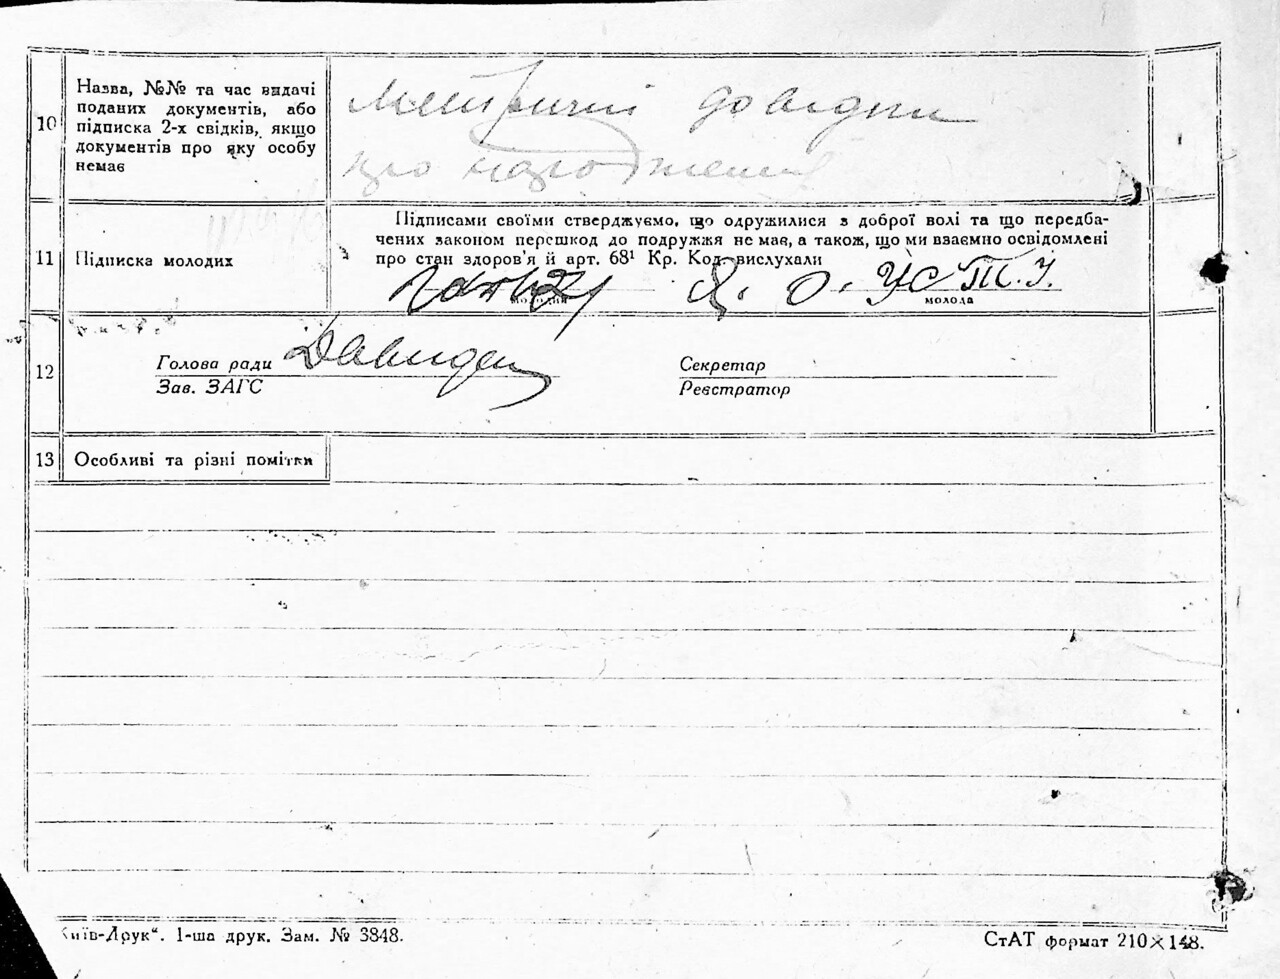 10
Назва, №№ та час видачі
поданих документів, або
підписка 2-х свідків, якщо
документів про яку особу
немає
Метричні довідки
про народження
11
Підписка молодих
Підписами своїми стверджуємо, що одружилися з доброї волі та що передба-
чених законом перешкод до подружжя не має, а також, що ми взаємно освідомлені
про стан здоров'я й арт. 68¹ Кр. Код. вислухали
Я. О. УСТ.У.
молодий
молода
12
Голова ради
Зав. ЗАГС
Секретар
Реєстратор
13
Особливі та різні помітки
„Київ-Друк“. 1-ша друк. Зам. № 3848.
СтАТ формат 210×148.